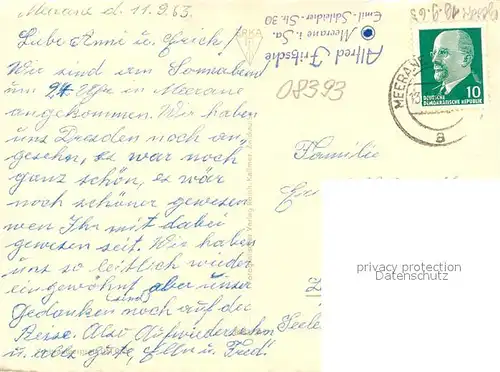 Merane d. 11.9.63.
Liebe Anni u. Erich!
Wir sind am Sonnabend
um 24 Uhr in Merane
angekommen. Wir haben
uns Dresden noch an-
gesehn, es war noch
ganz schön, es wär
noch schöner gewesen
wen Ihr mit dabei
gewesen seit. Wir haben
uns so leitlich wieder
eingewöhnt aber unser
Gedanken sind noch auf der
Reise. Also Aufwiedersehn
u. alles gute, Elln u. Fred!
Alfred Fritsche
Meerane i. Sa.
Emil-Schleider-Str. 30
08393
18.9.63
MEERANE
a
10
DEUTSCHE
DEMOKRATISCHE REPUBLIK
Familie
privacy protection
Datenschutz